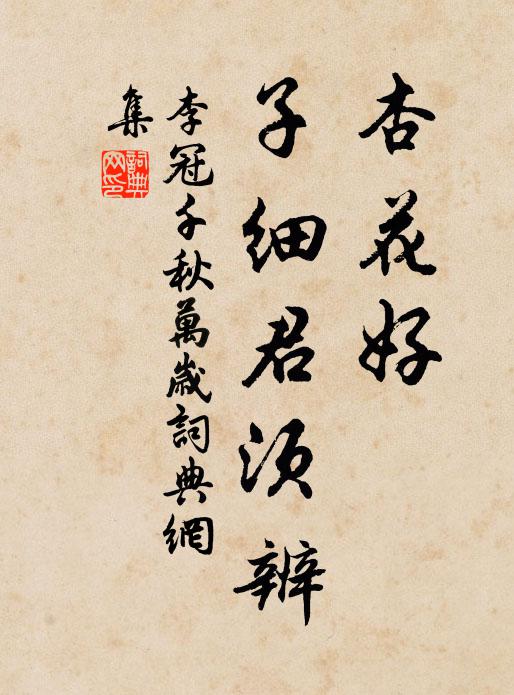 杏花好
子细君须辨
李冠千秋萬歲詞典網
集
詞典
网印